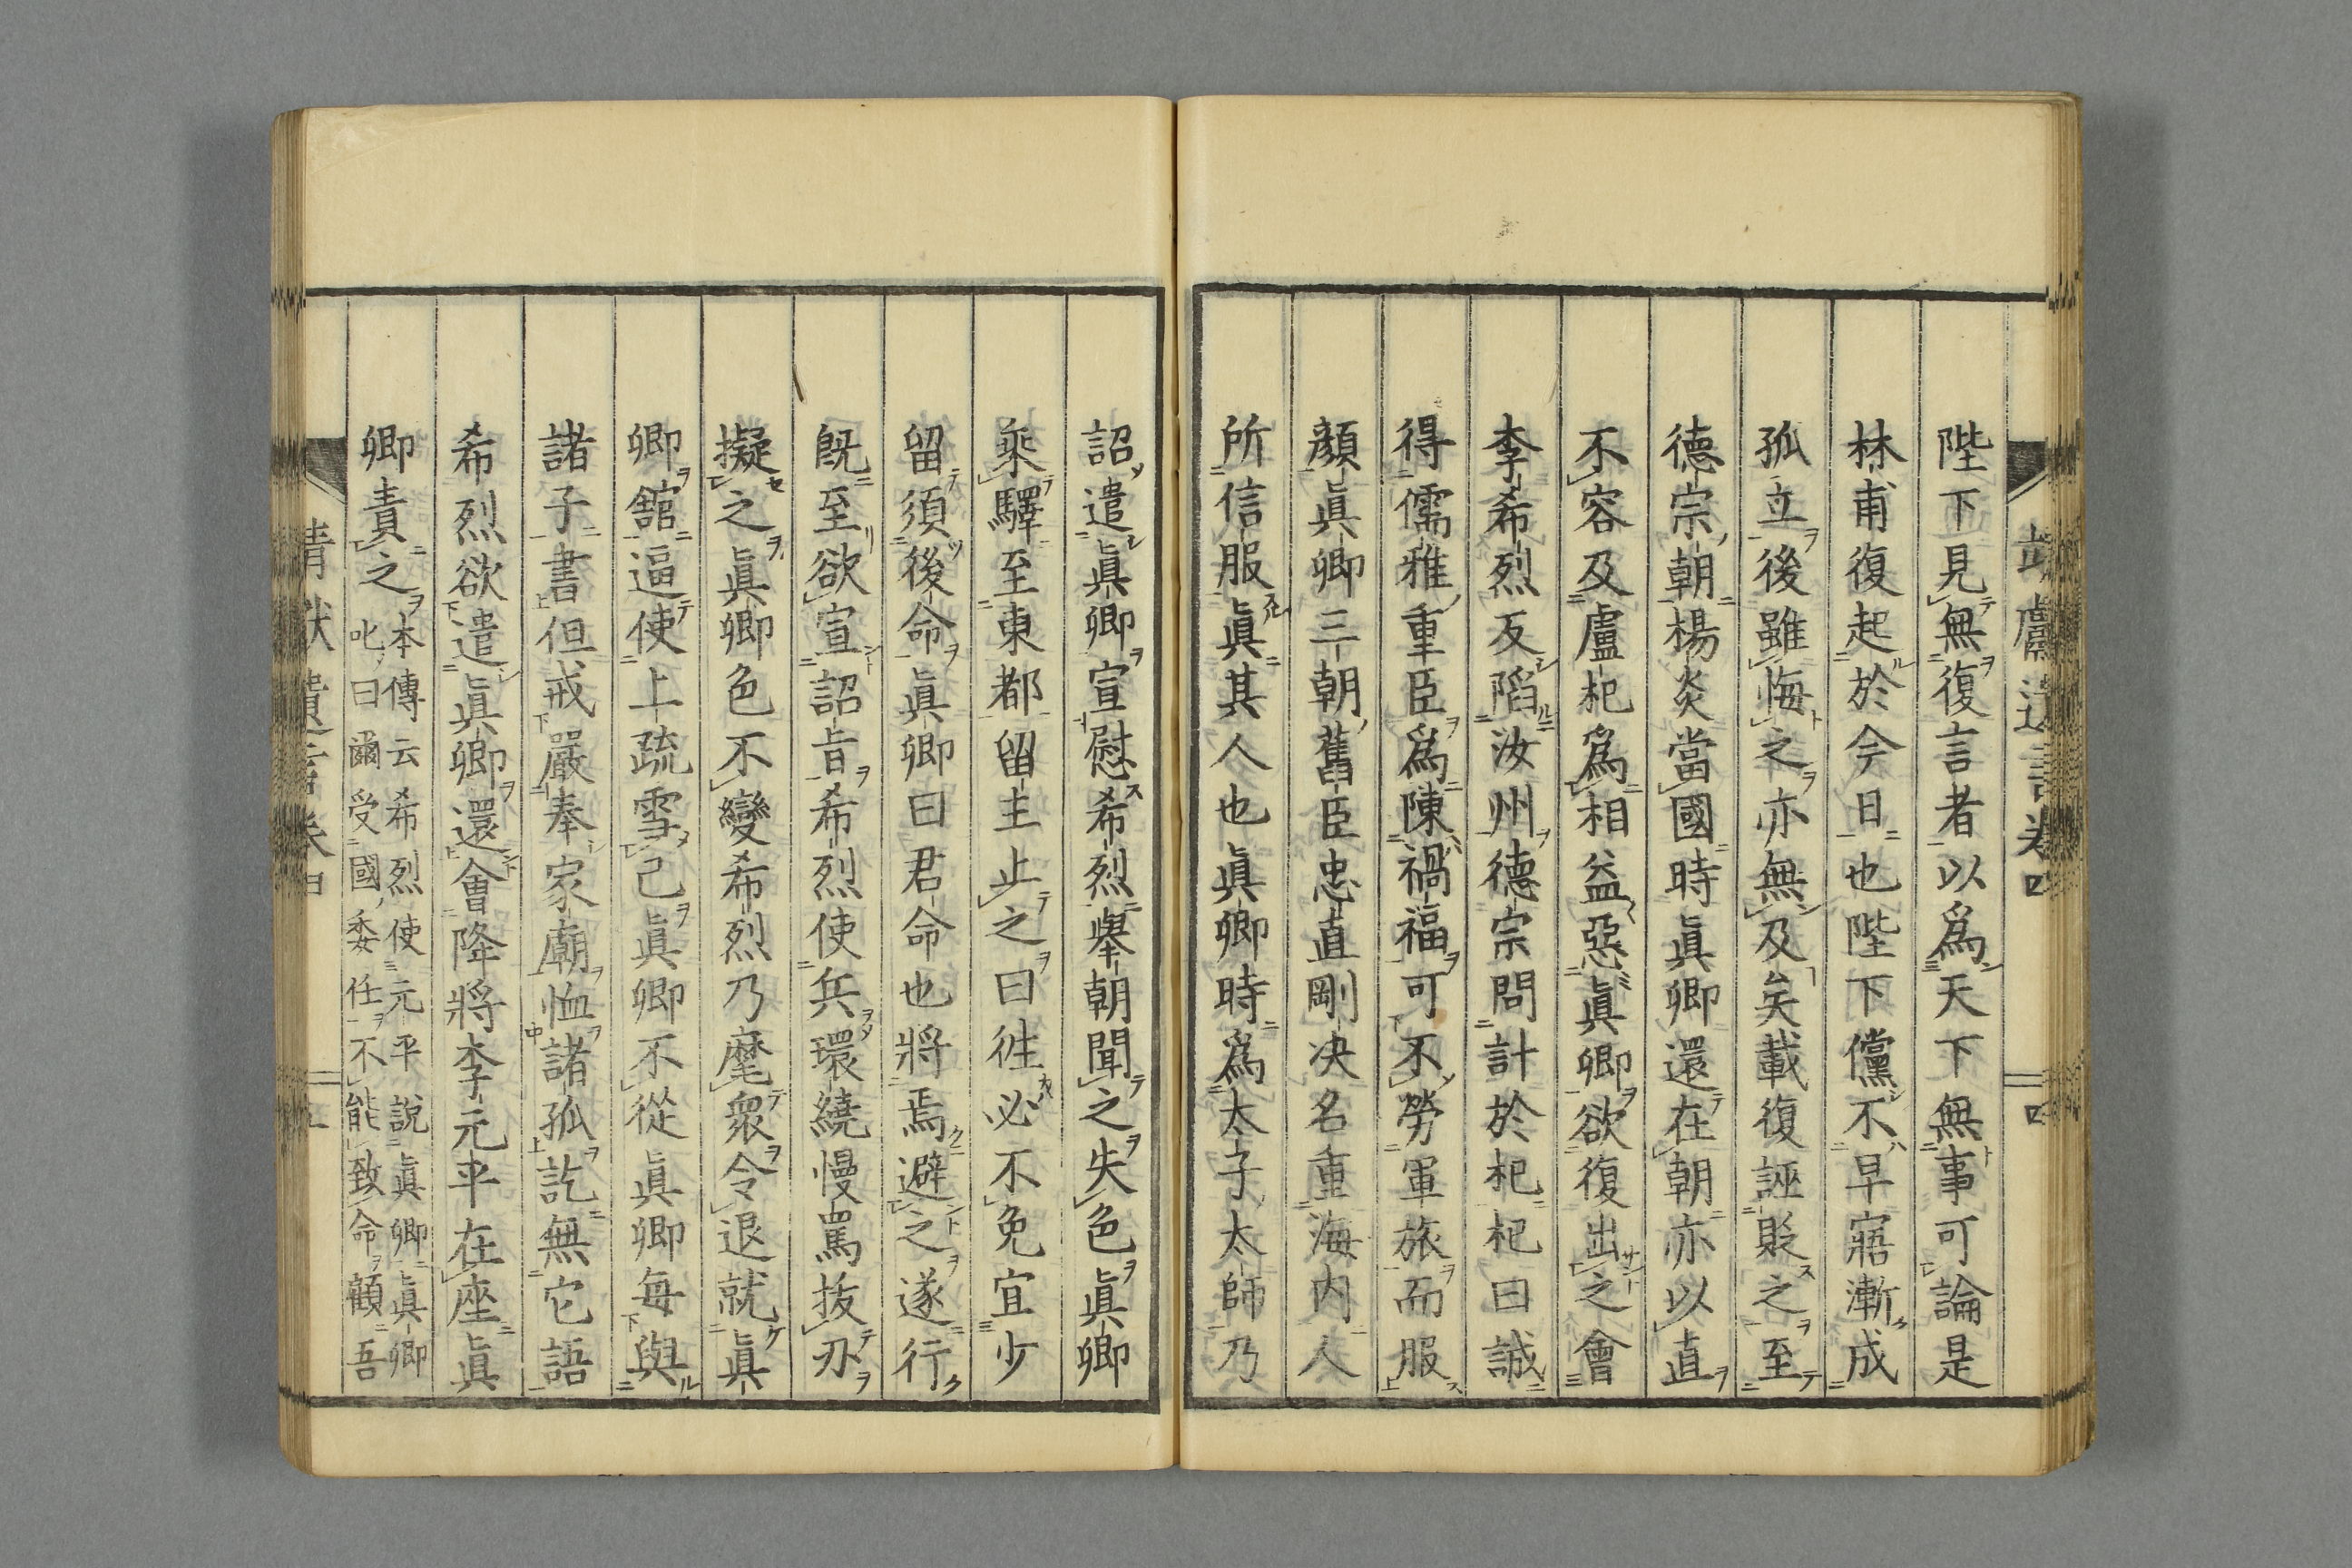 陛下見無復言者以爲天下無事可論是
林甫復起於今日也陛下儻不早寤漸成
孤立後雖悔之亦無及矣載復誣貶之至
德宗朝楊炎當國時眞卿還在朝亦以直
不容及盧杞爲相益惡眞卿欲復出之會
李希烈反陷汝州德宗問計於杞杞曰誠
得儒雅重臣爲陳禍福可不勞軍旅而服
顏眞卿三朝舊臣忠直剛决名重海内人
所信服眞其人也眞卿時爲太子太師乃
詔遣眞卿宣慰希烈擧朝聞之失色眞卿
乘驛至東都留主止之曰徃必不免宜少
留須後命眞卿曰君命也將焉避之遂行
旣至欲宣詔旨希烈使兵環繞慢罵拔刃
擬之眞卿色不變希烈乃麾衆令退就眞
卿舘逼使上疏雪己眞卿不從眞卿每與
諸子書但戒嚴奉家廟恤諸孤訖無它語
希烈欲遣眞卿還會降將李元平在座眞
卿責之
本傳云希烈使元平說眞卿眞卿
叱曰爾受國委任不能致命顧吾